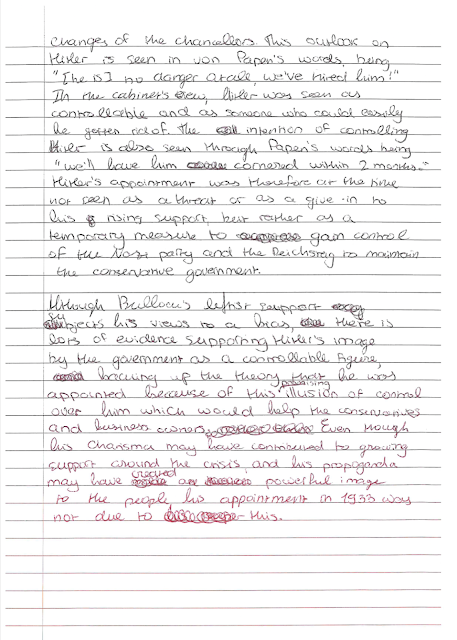 changes of the chancellors. This outlook on
Hitler is seen in von Papen's words, being
"[he is] no danger at all, we've hired him!"
In the cabinet's view, Hitler was seen as
controllable and as someone who could easily
be gotten rid of. The intention of controlling
Hitler is also seen through Papen's words being
"we'll have him cornered within 2 months."
Hitler's appointment was therefore at the time
not seen as a threat or as a give-in to
his rising support, but rather as a
temporary measure to gain control
of the Nazi party and the Reichstag to maintain
the conservative government.
Although Bullock's leftist support
subjects his views to a bias, there is
lots of evidence supporting Hitler's image
by the government as a controllable figure,
backing up the theory that he was
appointed because of this promising illusion of control
over him which would help the conservatives
and business owners. Even though
his charisma may have contributed to growing
support around the crisis, and his propaganda
may have created a powerful image
to the people, his appointment in 1933 was
not due to this.